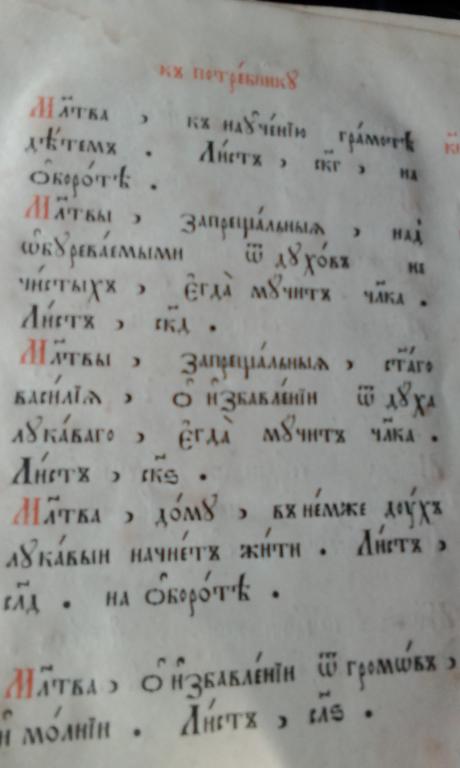 къ потре́бникꙋ
Мл҃тва , къ наᲂу҆че́нїю гра́мотѣ
дѣ́темъ . Ли́стъ , ск҃г , на
ѡ҆боро́тѣ .
Мл҃твы , запреща́льныѧ , над̾
ѡ҆бꙋрева́емыми ѿ дꙋхо́въ не
чи́стыхъ , є҆гда̀ мꙋ́читъ чл҃ка .
Ли́стъ , ск҃д .
Мл҃твы , запреща́льныѧ , ст҃а́го
васи́лїѧ , ѡ҆ и҆збавле́нїи ѿ дꙋха
лꙋка́ваго , є҆гда̀ мꙋчитъ чл҃ка .
Ли́стъ , ск҃ѕ .
Мл҃тва , до́мꙋ , въ не́мже доу́хъ
лꙋка́выи начне́тъ жи́ти . Ли́стъ ,
сл҃д . на ѡ҆боро́тѣ .
Мл҃тва , ѡ҆ и҆збавле́нїи ѿ громѡ́въ ,
и҆ мо́лнїи . Ли́стъ , сл҃ѕ .